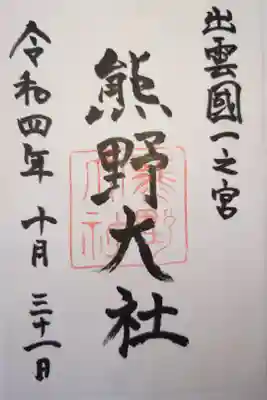 出雲國一之宮
熊野大社
令和四年 十月 三十一日